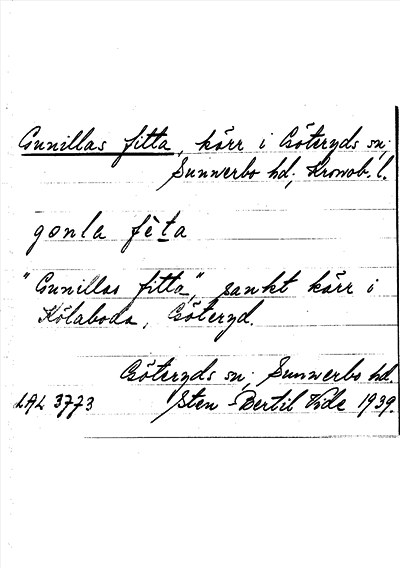 Gunillas fitta, kärr i Göteryds sn;
Sunnerbo hd; Kronob. l.
gonla fèta
"Gunillas fitta," sankt kärr i
Kölaboda, Göteryd.
Göteryds sn; Sunnerbo hd.
LAL 3773 Sten-Bertil Vide 1939.